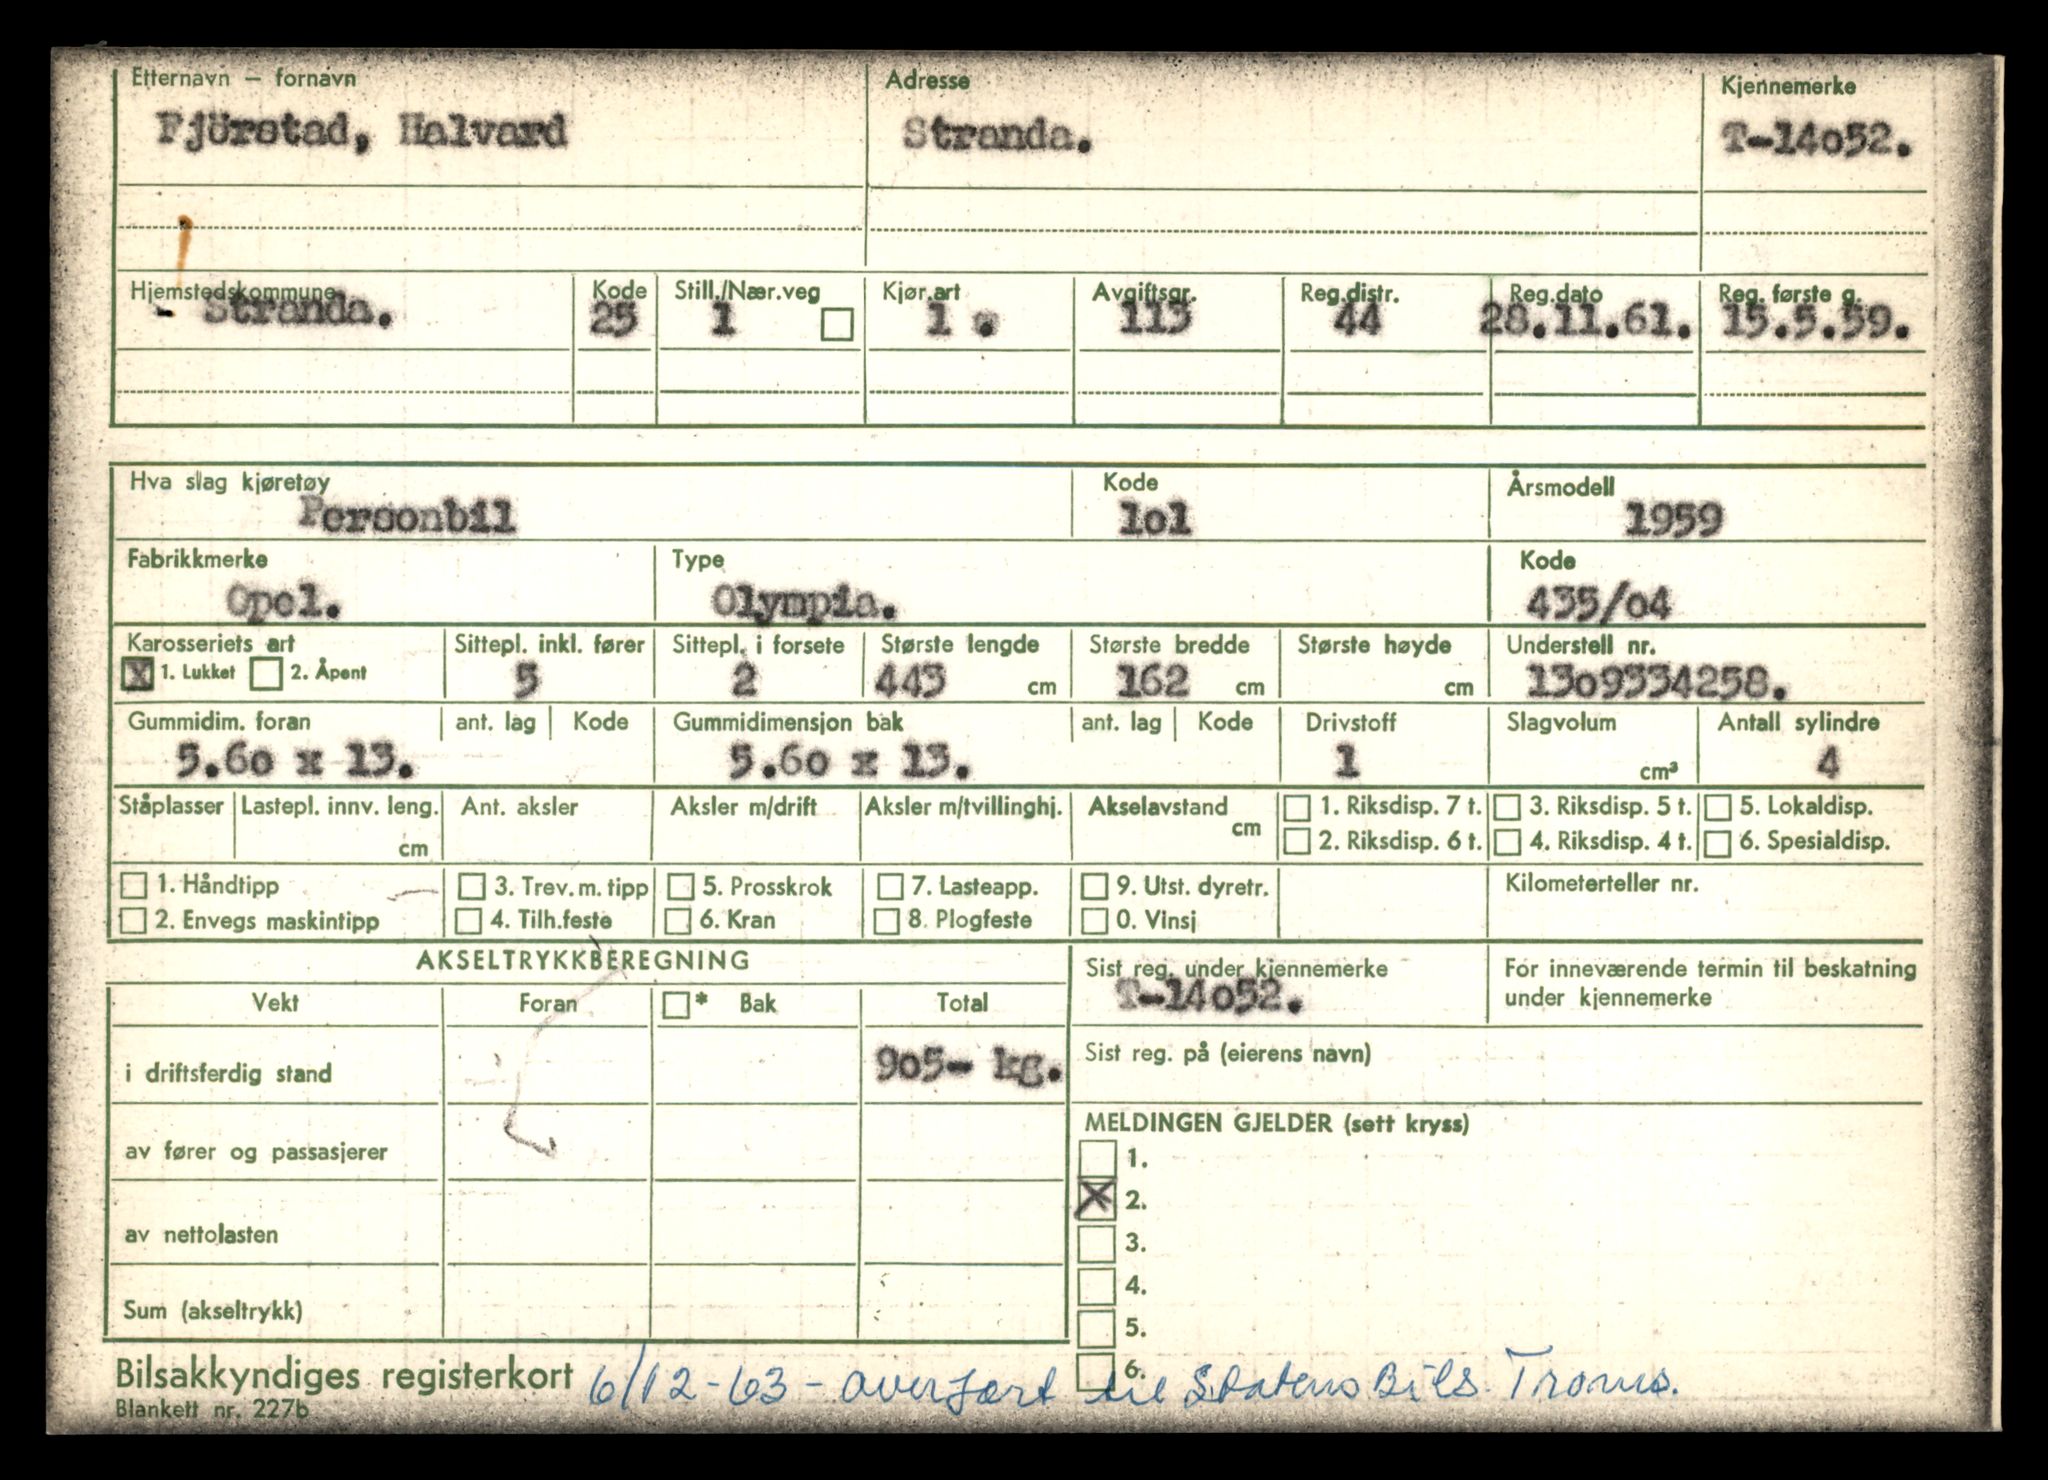 Etternavn – fornavn Adresse Kjennemerke
Fjörstad, Halvard Stranda. T-14o52.
Hjemstedskommune Kode Still./Nær.veg Kjør.art Avgiftsgr. Reg.distr. Reg.dato Reg. første g.
- Stranda. 25 1 1 . 113 44 28.11.61. 15.5.59.
Hva slag kjøretøy Kode Årsmodell
Personbil 1o1 1959
Fabrikkmerke Type Kode
Opel. Olympia. 435/o4
Karosseriets art Sittepl. inkl. fører Sittepl. i forsete Største lengde Største bredde Største høyde Understell nr.
X 1. Lukket 2. Åpent 5 2 443 cm 162 cm cm 13o9334258.
Gummidim. foran ant. lag Kode Gummidimensjon bak ant. lag Kode Drivstoff Slagvolum Antall sylindre
5.6o x 13. 5.6o x 13. 1 cm³ 4
Ståplasser Lastepl. innv. leng. Ant. aksler Aksler m/drift Aksler m/tvillinghj. Akselavstand 1. Riksdisp. 7 t. 3. Riksdisp. 5 t. 5. Lokaldisp.
cm cm 2. Riksdisp. 6 t. 4. Riksdisp. 4 t. 6. Spesialdisp.
1. Håndtipp 3. Trev. m. tipp 5. Prosskrok 7. Lasteapp. 9. Utst. dyretr. Kilometerteller nr.
2. Envegs maskintipp 4. Tilh.feste 6. Kran 8. Plogfeste 0. Vinsj
AKSELTRYKKBEREGNING
Vekt Foran * Bak Total
i driftsferdig stand 9o5- kg.
av fører og passasjerer
av nettolasten
Sum (akseltrykk)
Sist reg. under kjennemerke
T-14o52.
For inneværende termin til beskatning
under kjennemerke
Sist reg. på (eierens navn)
MELDINGEN GJELDER (sett kryss)
1.
X 2.
3.
4.
5.
6.
Bilsakkyndiges registerkort 6/12-63 - overført til Statens Bils. Troms.
Blankett nr. 227b